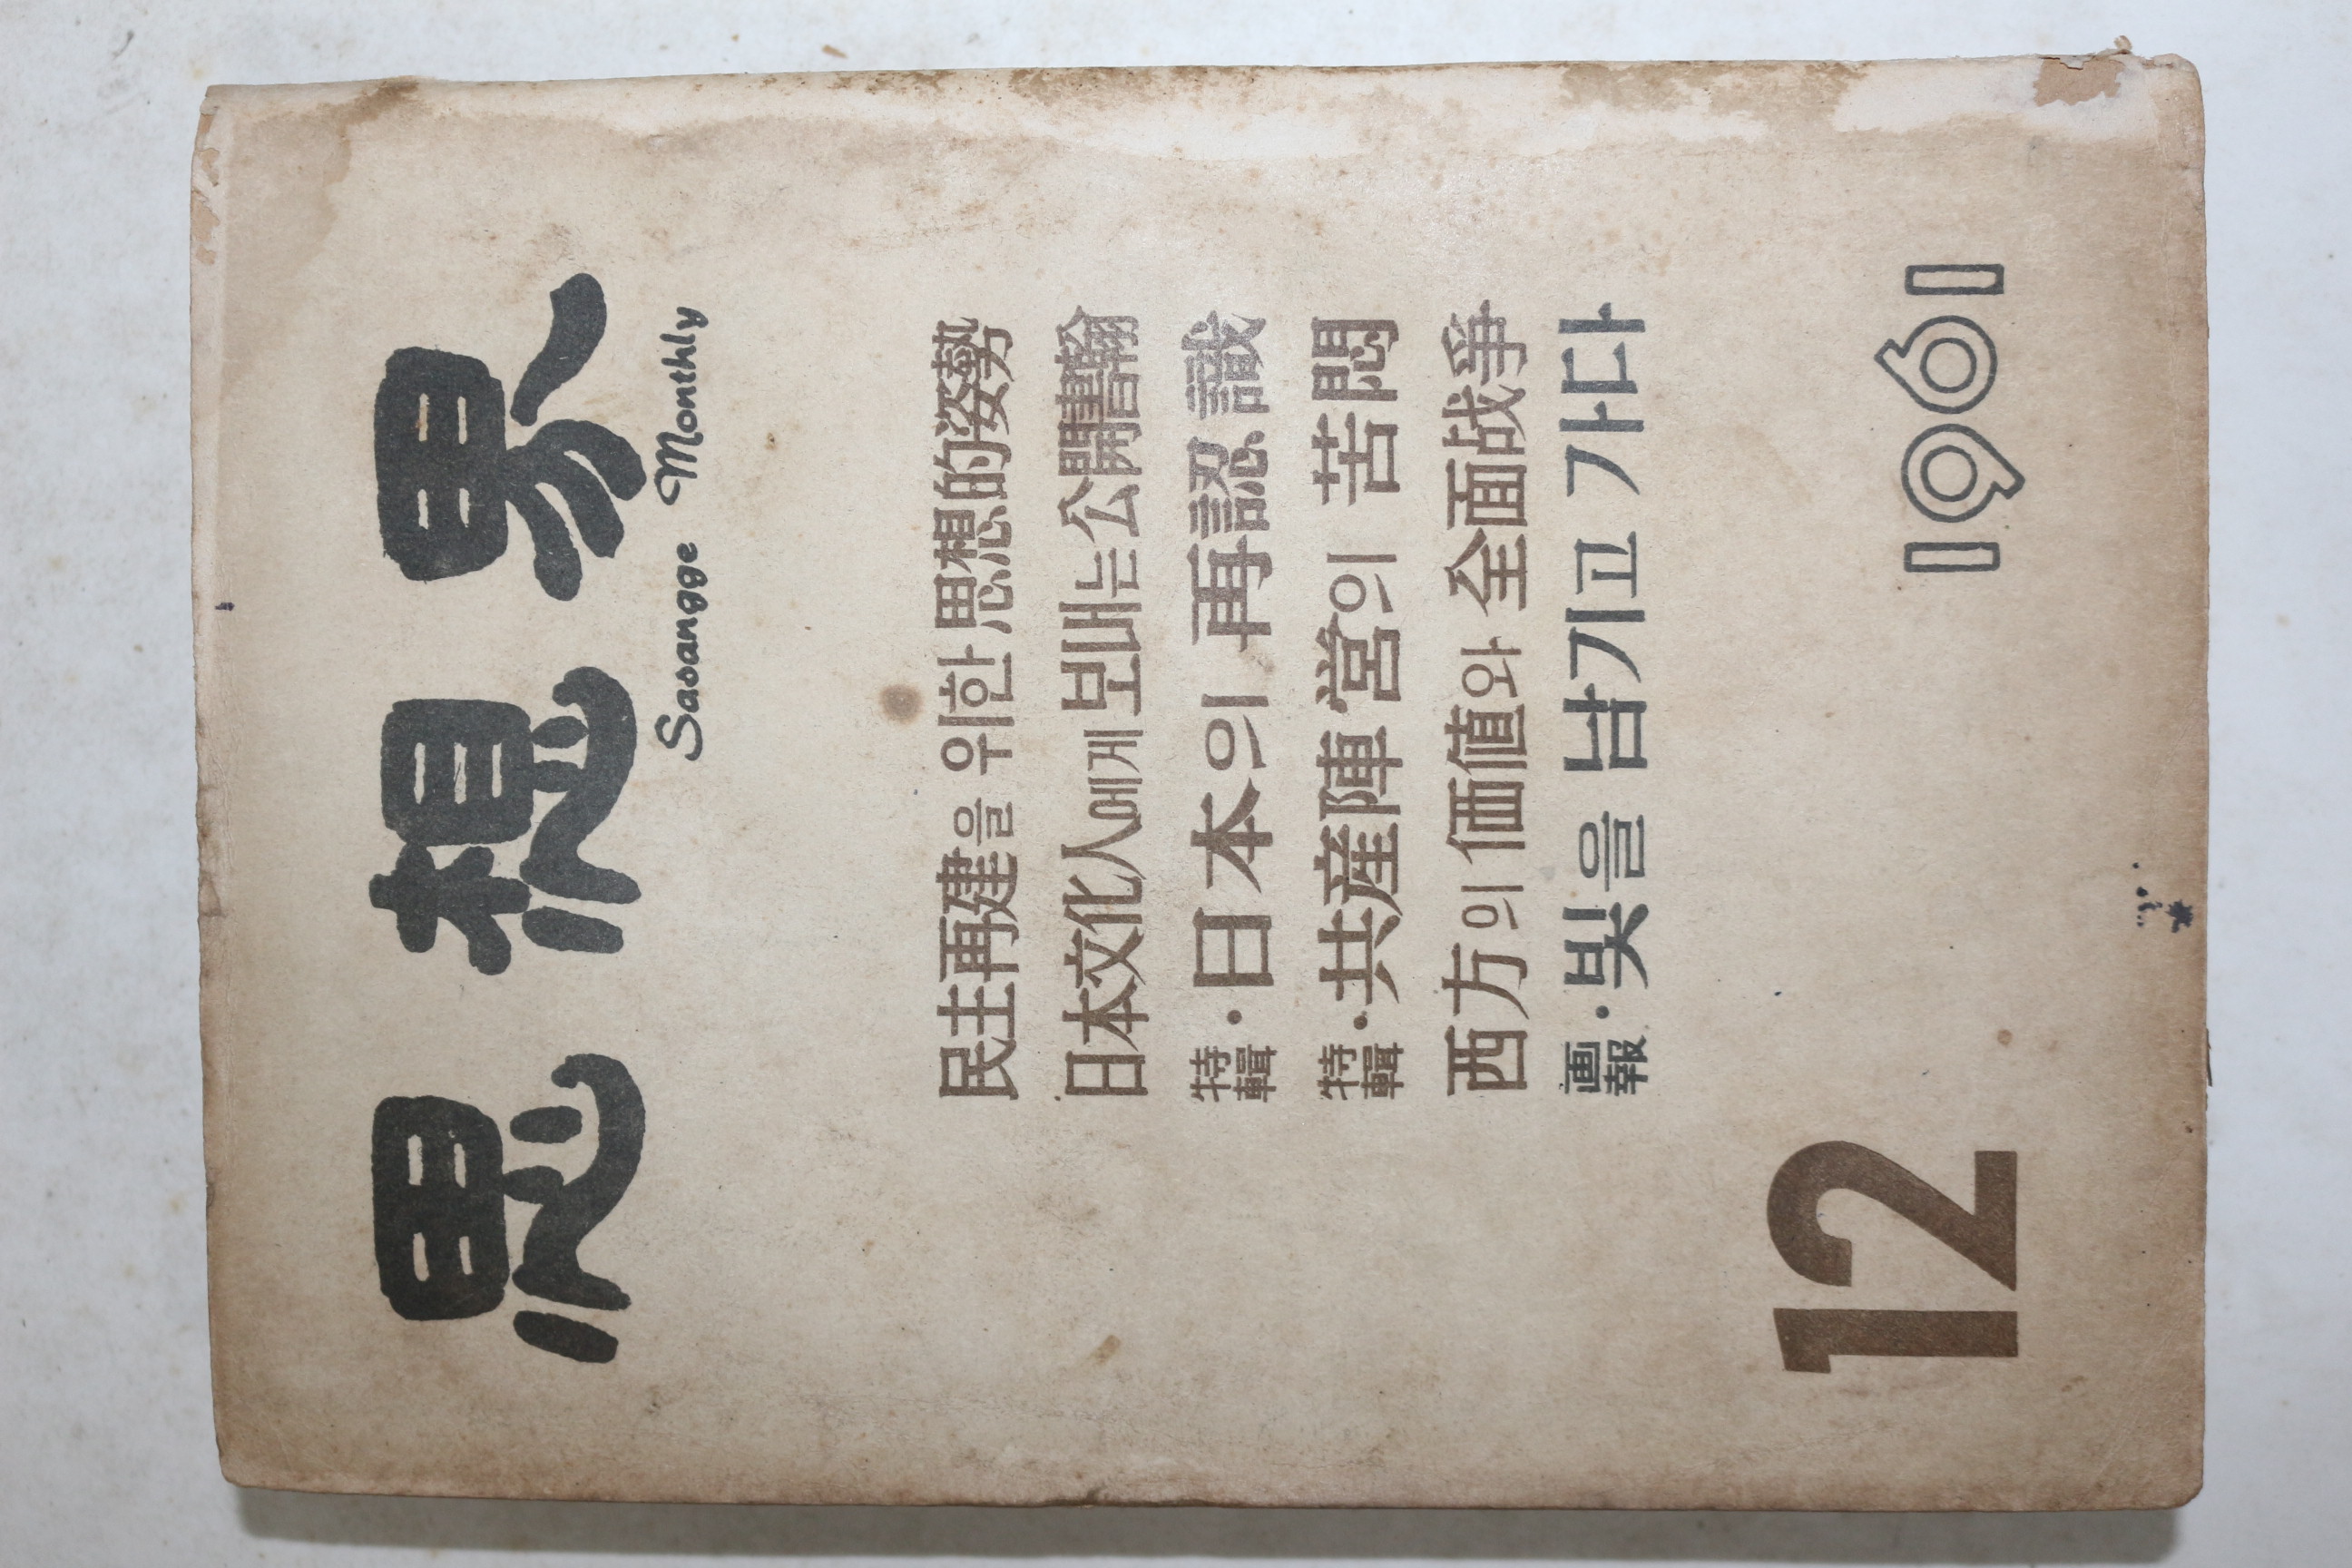 思想界
Sasangge Monthly
民主再建을 위한 思想的姿勢
日本文化人에게 보내는 公開書翰
特輯·日本의 再認識
特輯·共産陣營의 苦悶
西方의 価値와 全面战爭
画報·빛을 남기고 가다
12
1961